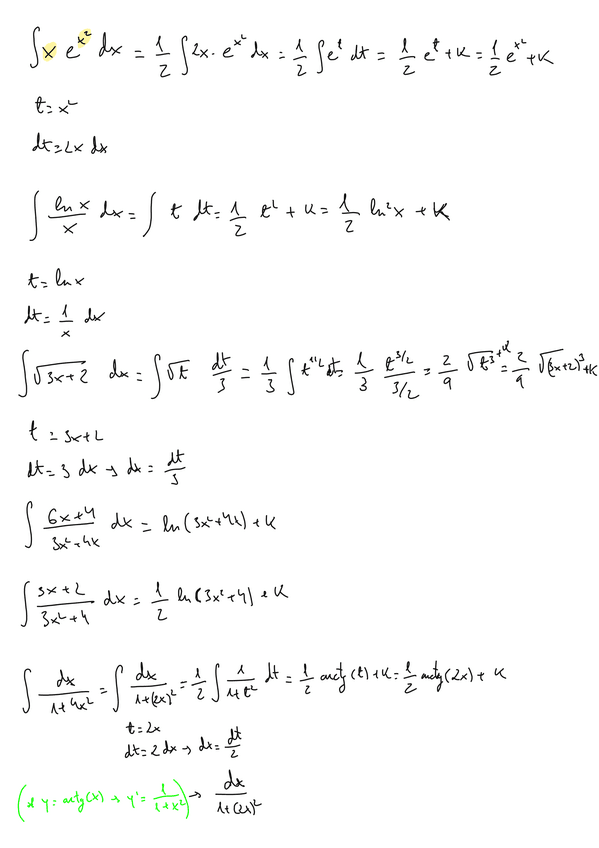 ∫ x e^(x²) dx = 1/2 ∫ 2x · e^(x²) dx = 1/2 ∫ e^t dt = 1/2 e^t + K = 1/2 e^(x²) + K
t = x²
dt = 2x dx
∫ (ln x)/x dx = ∫ t dt = 1/2 t² + K = 1/2 ln²x + K
t = ln x
dt = 1/x dx
∫ √(3x+2) dx = ∫ √t dt/3 = 1/3 ∫ t^(1/2) dt = 1/3 t^(3/2)/(3/2) = 2/9 √(t³) + K = 2/9 √((3x+2)³) + K
t = 3x+2
dt = 3 dx → dx = dt/3
∫ (6x+4)/(3x²+4x) dx = ln(3x²+4x) + K
∫ (3x+2)/(3x²+4) dx = 1/2 ln(3x²+4) + K
∫ dx/(1+4x²) = ∫ dx/(1+(2x)²) = 1/2 ∫ 1/(1+t²) dt = 1/2 arctg(t) + K = 1/2 arctg(2x) + K
t = 2x
dt = 2 dx → dx = dt/2
y = arctg(x) → y' = 1/(1+x²)) → dx/(1+(2x)²)